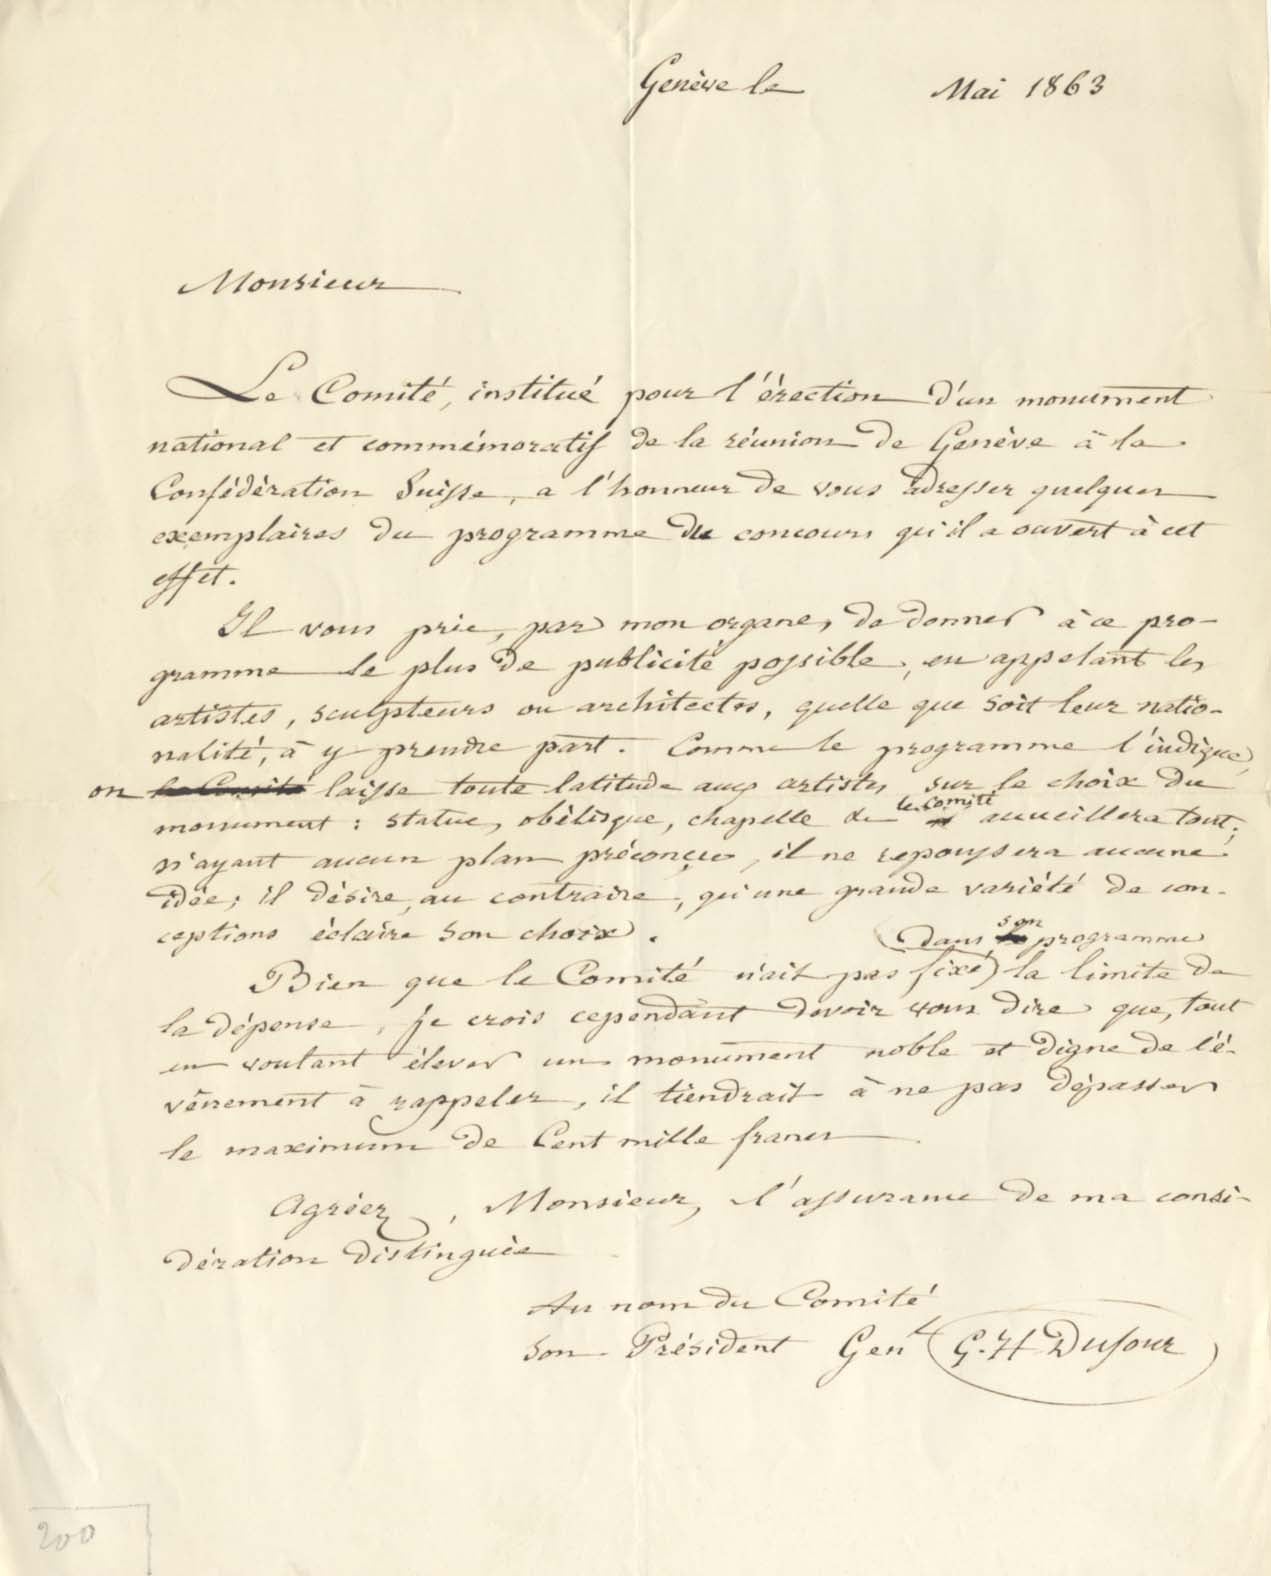 Genève le Mai 1863
Monsieur
Le Comité, institué pour l'érection d'un monument
national et commémoratif de la réunion de Genève à la
Confédération Suisse, a l'honneur de vous adresser quelques
exemplaires du programme du concours qu'il a ouvert à cet
effet.
Il vous prie, par mon organe, de donner à ce pro-
gramme le plus de publicité possible, en appelant les
artistes, sculpteurs ou architectes, quelle que soit leur natio-
nalité, à y prendre part. Comme le programme l'indique,
on le Comité laisse toute latitude aux artistes sur le choix du
le Comité
monument : statue, obélisque, chapelle &c accueillera tout;
n'ayant aucun plan préconçu, il ne repoussera aucune
idée; il désire, au contraire, qu'une grande variété de con-
ceptions éclaire son choix.
son
(dans programme
Bien que le Comité n'ait pas fixé) la limite de
la dépense, je crois cependant devoir vous dire que, tout
en voulant élever un monument noble et digne de l'é-
vènement à rappeler, il tiendrait à ne pas dépasser
le maximum de Cent mille francs
Agréez, Monsieur, l'assurance de ma consi-
dération distinguée
Au nom du Comité
Son Président Genl G. H Dufour
200